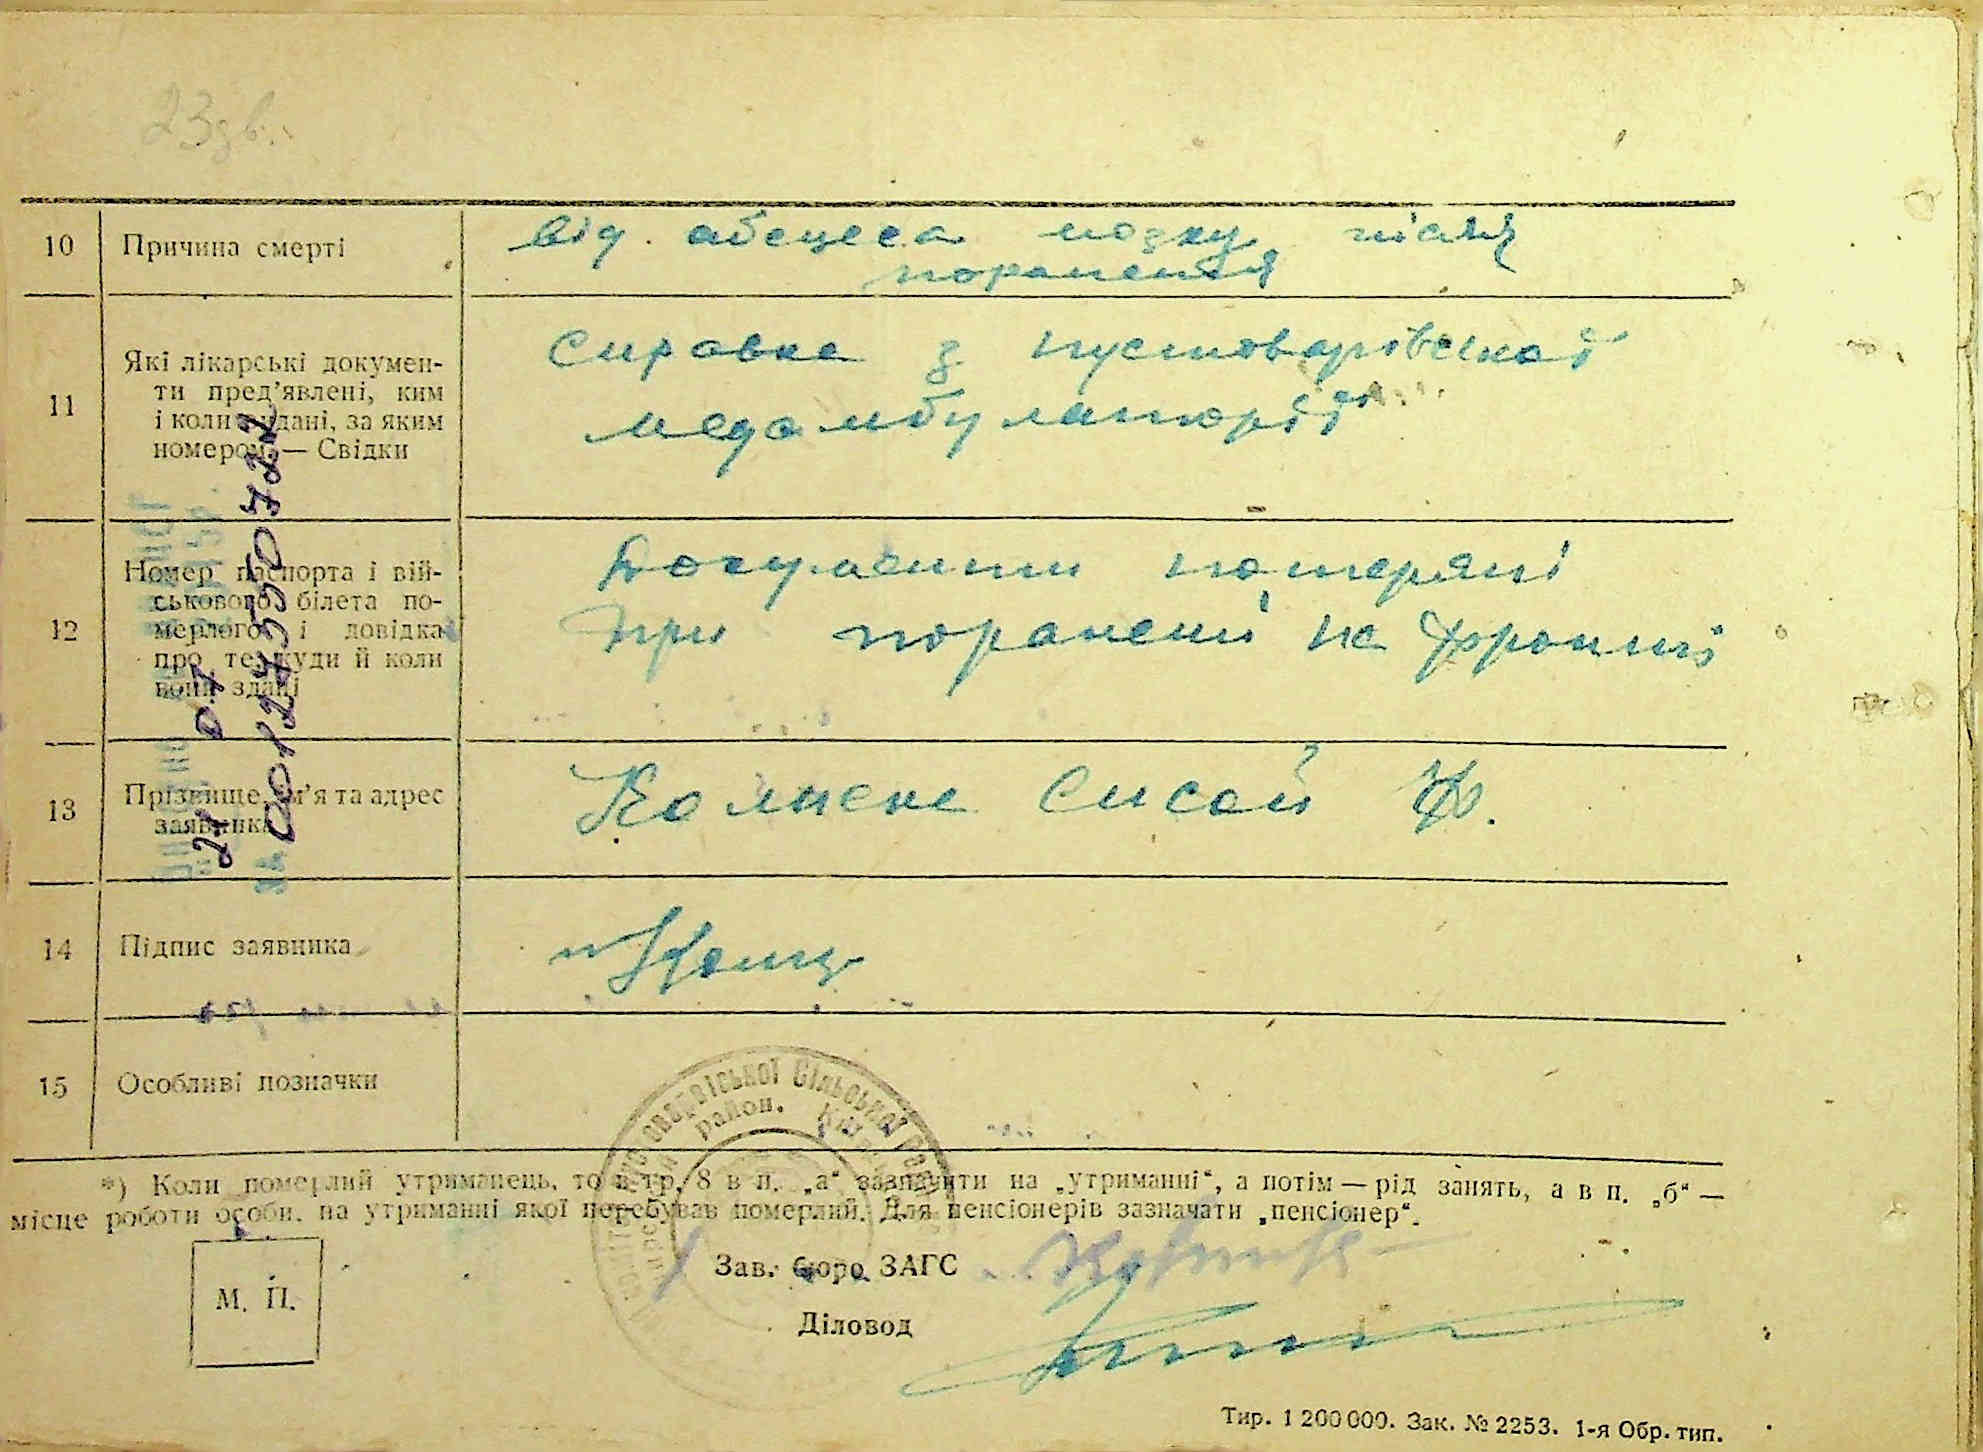 23 зв.
10 Причина смерті від абсцеса мозку після
поранення
11 Які лікарські докумен-
ти пред'явлені, ким
і коли видані, за яким
номером — Свідки
Справка з пустоварівської
медамбулаторії
12 Номер паспорта і вій-
ськового білета по-
мерлого і довідка
про те, куди й коли
вони здані
Документи потеряні
при поранені на фронті
13 Прізвище, ім'я та адрес
заявника
Сисой Ф.
14 Підпис заявника
15 Особливі позначки
Сільської Ради
район.
*) Коли померлий утриманець, то в гр. 8 в п. „а“ зазначити на „утриманні“, а потім — рід занять, а в п. „б“ —
місце роботи особи, на утриманні якої перебував померлий. Для пенсіонерів зазначати „пенсіонер“.
М. П.
Зав. бюро ЗАГС
Діловод
Тир. 1 200 000. Зак. № 2253. 1-я Обр. тип.